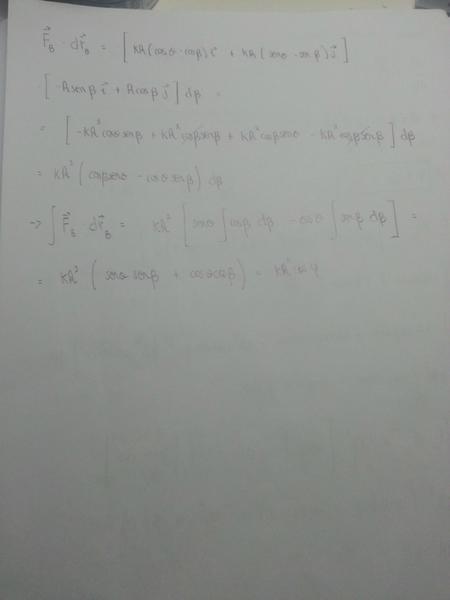 F⃗_B · dr⃗_B = [ KR(cosθ - cosβ) i⃗ + KR (senθ - senβ) j⃗ ]
[ -Rsenβ i⃗ + Rcosβ j⃗ ] dβ =
= [ -KR² cosθ senβ + KR² cosβ senβ + KR² cosβ senθ - KR² cosβ senβ ] dβ
= KR² ( cosβ senθ - cosθ senβ ) dβ
-> ∫ F⃗_B · dr⃗_B = KR² [ senθ ∫ cosβ dβ - cosθ ∫ senβ dβ ] =
= KR² ( senθ senβ + cosθ cosβ ) = KR² cos φ